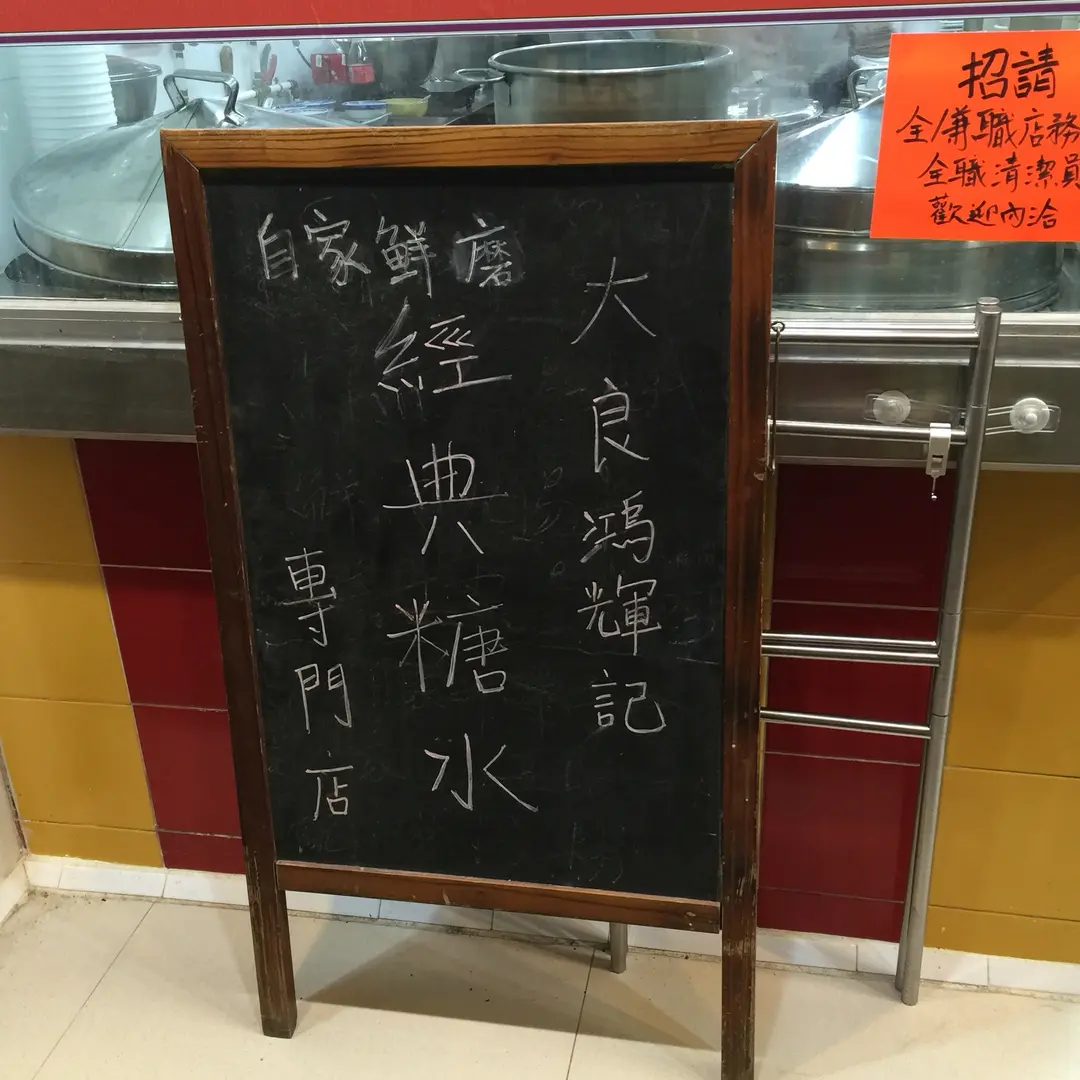 自家鮮磨
大良鴻輝記
經典糖水
專門店
招請
全/兼職店務
全職清潔員
歡迎內洽